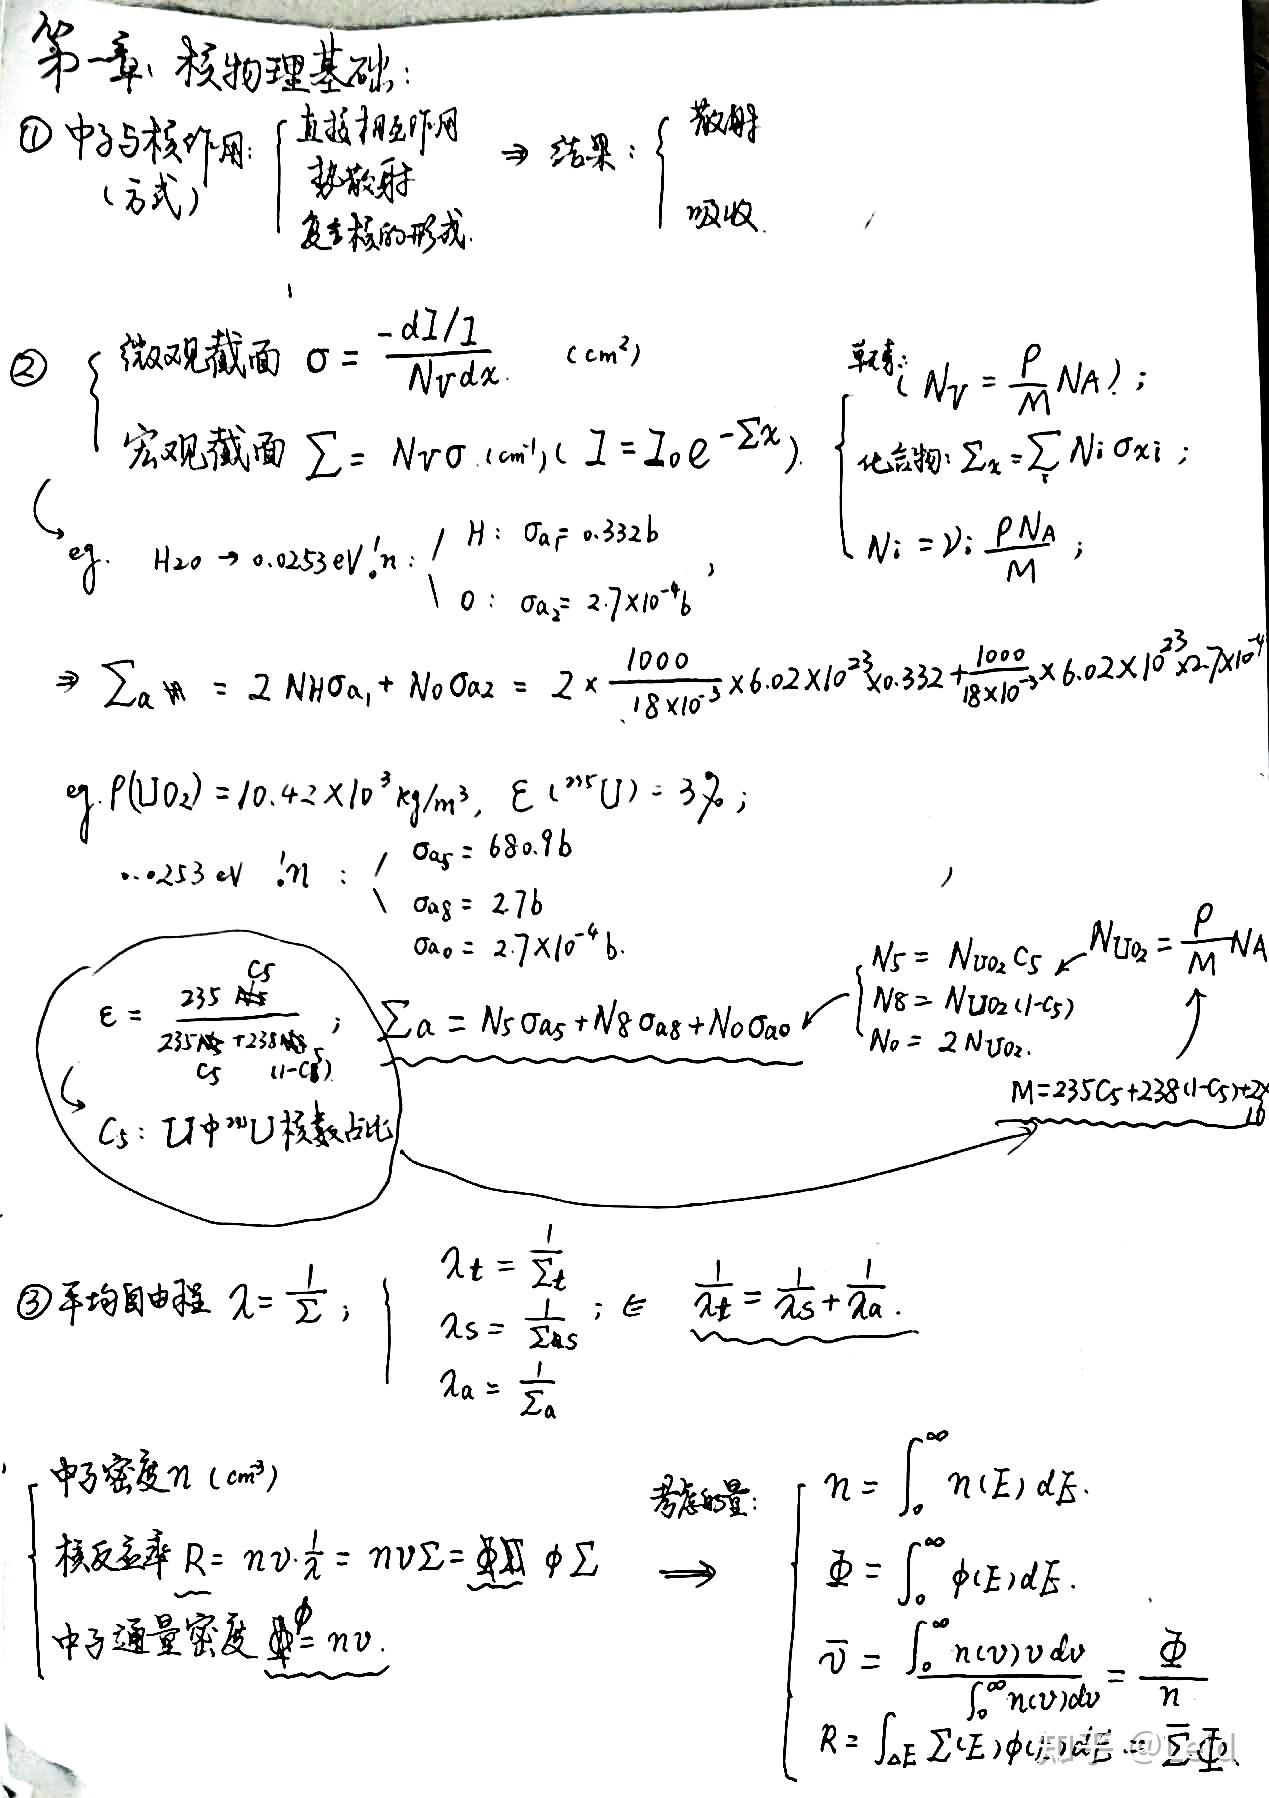 第一章、核物理基础：
① 中子与核作用：（方式） { 直接相互作用 势散射 复合核的形成. ⇒ 结果： { 散射 吸收.
② { 微观截面 σ = -dI/I / Nv dx. (cm²)
宏观截面 Σ = Nvσ. (cm⁻¹) ( I = I₀e^(-Σx) ).
{ 单元素：( Nv = ρ/M NA ) ;
化合物：Σx = Σi Ni σxi ;
Ni = νi ρNA/M ;
eg. H2O → 0.0253eV 's n : H : σa₁ = 0.332b
O : σa₂ = 2.7×10⁻⁴b ,
⇒ Σa = 2NHσa₁ + NOσa2 = 2 × 1000/18×10⁻³ × 6.02×10²³ × 0.332 + 1000/18×10⁻³ × 6.02×10²³ × 2.7×10⁻⁴
eg. ρ(UO₂) = 10.42×10³ kg/m³, ε(²³⁵U) = 3% ;
0.0253 eV 's n : σa5 = 680.9b
σa8 = 2.7b
σa0 = 2.7×10⁻⁴ b.
ε = 235 C5 / 235 C5 + 238 (1-C5) ;
C5 : U中²³⁵U核数占比
Σa = N5σa5 + N8σa8 + N0σa0
{ N5 = NUO₂ C5
N8 = NUO₂ (1-C5)
N0 = 2NUO₂.
NUO₂ = ρ/M NA
M = 235C5 + 238(1-C5) + 2×16
③ 平均自由程 λ = 1/Σ ; { λt = 1/Σt
λs = 1/Σs
λa = 1/Σa
; ∈ 1/λt = 1/λs + 1/λa.
{ 中子密度 n (cm³)
核反应率 R = nv·1/λ = nvΣ = φΣ
中子通量密度 φ = nv.
考虑的量： ⟶
{ n = ∫₀^∞ n(E) dE.
Φ = ∫₀^∞ φ(E) dE.
v̄ = ∫₀^∞ n(v)v dv / ∫₀^∞ n(v)dv = Φ/n
R = ∫ΔE Σ(E)φ(E)dE = Σ̄Φ.
知乎 @Leid